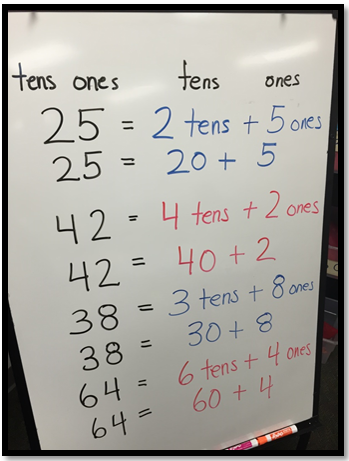 tens ones tens ones
25 = 2 tens + 5 ones
25 = 20 + 5
42 = 4 tens + 2 ones
42 = 40 + 2
38 = 3 tens + 8 ones
38 = 30 + 8
64 = 6 tens + 4 ones
64 = 60 + 4